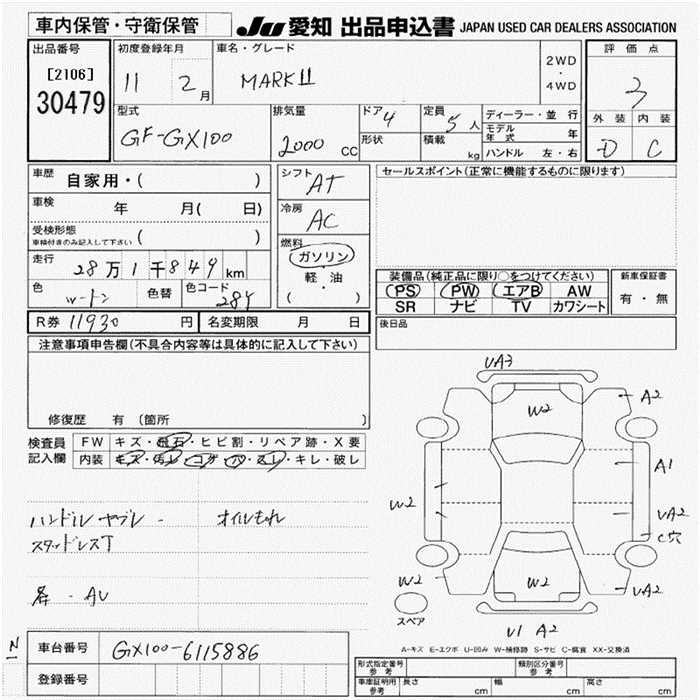 車内保管・守衛保管
JU 愛知 出品申込書 JAPAN USED CAR DEALERS ASSOCIATION
出品番号
[2106]
30479
初度登録年月
11 2月
車名・グレード
MARKⅡ
2WD
・
4WD
評価点
3
外装 内装
D C
型式
GF-GX100
排気量
2000 CC
ドア 4
形状
定員 5人
積載 kg
ディーラー・並行
モデル年式 年
ハンドル 左・右
車歴 自家用・( )
車検 年 月( 日)
受検形態
車検付きのみ記入して下さい ( )
走行 28万1千849km
色 W-トン 色替 色コード 28Y
シフト AT
冷房 AC
燃料
ガソリン
軽・油
( )
セールスポイント(正常に機能するものに限ります)
装備品(純正品に限り○をつけてください)
PS PW エアB AW
SR ナビ TV カワシート
新車保証書
有・無
R券 11930 円 名変期限 月 日
後日品
注意事項申告欄(不具合内容等は具体的に記入して下さい)
修復歴 有(箇所 )
検査員記入欄
FW キズ・飛石・ヒビ割・リペア跡・X要
内装 キズ・汚レ・コゲ・穴・スレ・キレ・破レ
ハンドル ヤブレ - オイルもれ
スタッドレスT
AU
UA3
A2
W2
A1
W2
UA2
C穴
W2
W2
UA2
スペア
U1 A2
A-キズ E-エクボ U-凹み W-補修跡 S-サビ C-腐食 XX-交換済
N
1
車台番号 GX100-6115886
登録番号
形式指定番号 参考 類別区分番号 参考
車庫証明用 参考 長さ cm 幅 cm 高さ cm